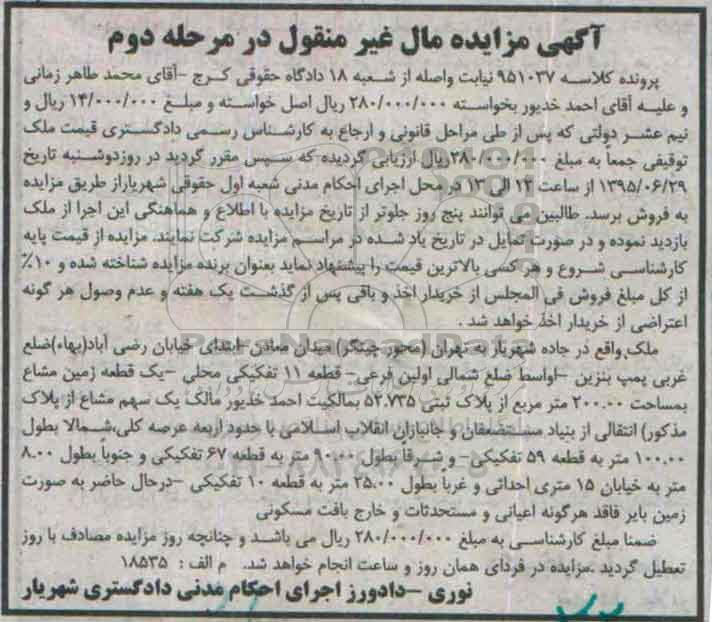 آگهی مزایده مال غیر منقول در مرحله دوم
پرونده کلاسه ۹۵۱۰۳۷ نیابت واصله از شعبه ۱۸ دادگاه حقوقی کرج -آقای محمد طاهر زمانی
و علیه آقای احمد خدیور بخواسته ۲۸۰/۰۰۰/۰۰۰ ریال اصل خواسته و مبلغ ۱۴/۰۰۰/۰۰۰ ریال و
نیم عشر دولتی که پس از طی مراحل قانونی و ارجاع به کارشناس رسمی دادگستری قیمت ملک
توقیفی جمعاً به مبلغ ۲۸۰/۰۰۰/۰۰۰ریال ارزیابی گردیده که سپس مقرر گردید در روزدوشنبه تاریخ
۱۳۹۵/۰۶/۲۹ از ساعت ۱۲ الی ۱۳ در محل اجرای احکام مدنی شعبه اول حقوقی شهریاراز طریق مزایده
به فروش برسد. طالبین می توانند پنج روز جلوتر از تاریخ مزایده با اطلاع و هماهنگی این اجرا از ملک
بازدید نموده و در صورت تمایل در تاریخ یاد شده در مراسم مزایده شرکت نمایند. مزایده از قیمت پایه
کارشناسی شروع و هر کسی بالاترین قیمت را پیشنهاد نماید بعنوان برنده مزایده شناخته شده و ۱۰٪
از کل مبلغ فروش فی المجلس از خریدار اخذ و باقی پس از گذشت یک هفته و عدم وصول هر گونه
اعتراضی از خریدار اخذ خواهد شد .
ملک واقع در جاده شهریار به تهران (محور چیتگر)میدان معادن -ابتدای خیابان رضی آباد(بهاء)ضلع
غربی پمپ بنزین -اواسط ضلع شمالی اولین فرعی- قطعه ۱۱ تفکیکی محلی -یک قطعه زمین مشاع
بمساحت ۲۰۰.۰۰ متر مربع از پلاک ثبتی ۵۲.۷۳۵ بمالکیت احمد خدیور مالک یک سهم مشاع از پلاک
مذکور) انتقالی از بنیاد مستضعفان و جانبازان انقلاب اسلامی با حدود اربعه عرصه کلی،شمالا بطول
۱۰۰.۰۰ متر به قطعه ۵۹ تفکیکی- و شرقا بطول ۹۰.۰۰ متر به قطعه ۶۷ تفکیکی و جنوباً بطول ۸.۰۰
متر به خیابان ۱۵ متری احداثی و غربا بطول ۲۵.۰۰ متر به قطعه ۱۰ تفکیکی -درحال حاضر به صورت
زمین بایر فاقد هرگونه اعیانی و مستحدثات و خارج بافت مسکونی
ضمنا مبلغ کارشناسی به مبلغ ۲۸۰/۰۰۰/۰۰۰ ریال می باشد و چنانچه روز مزایده مصادف با روز
تعطیل گردید .مزایده در فردای همان روز و ساعت انجام خواهد شد. م الف : ۱۸۵۳۵
نوری -دادورز اجرای احکام مدنی دادگستری شهریار